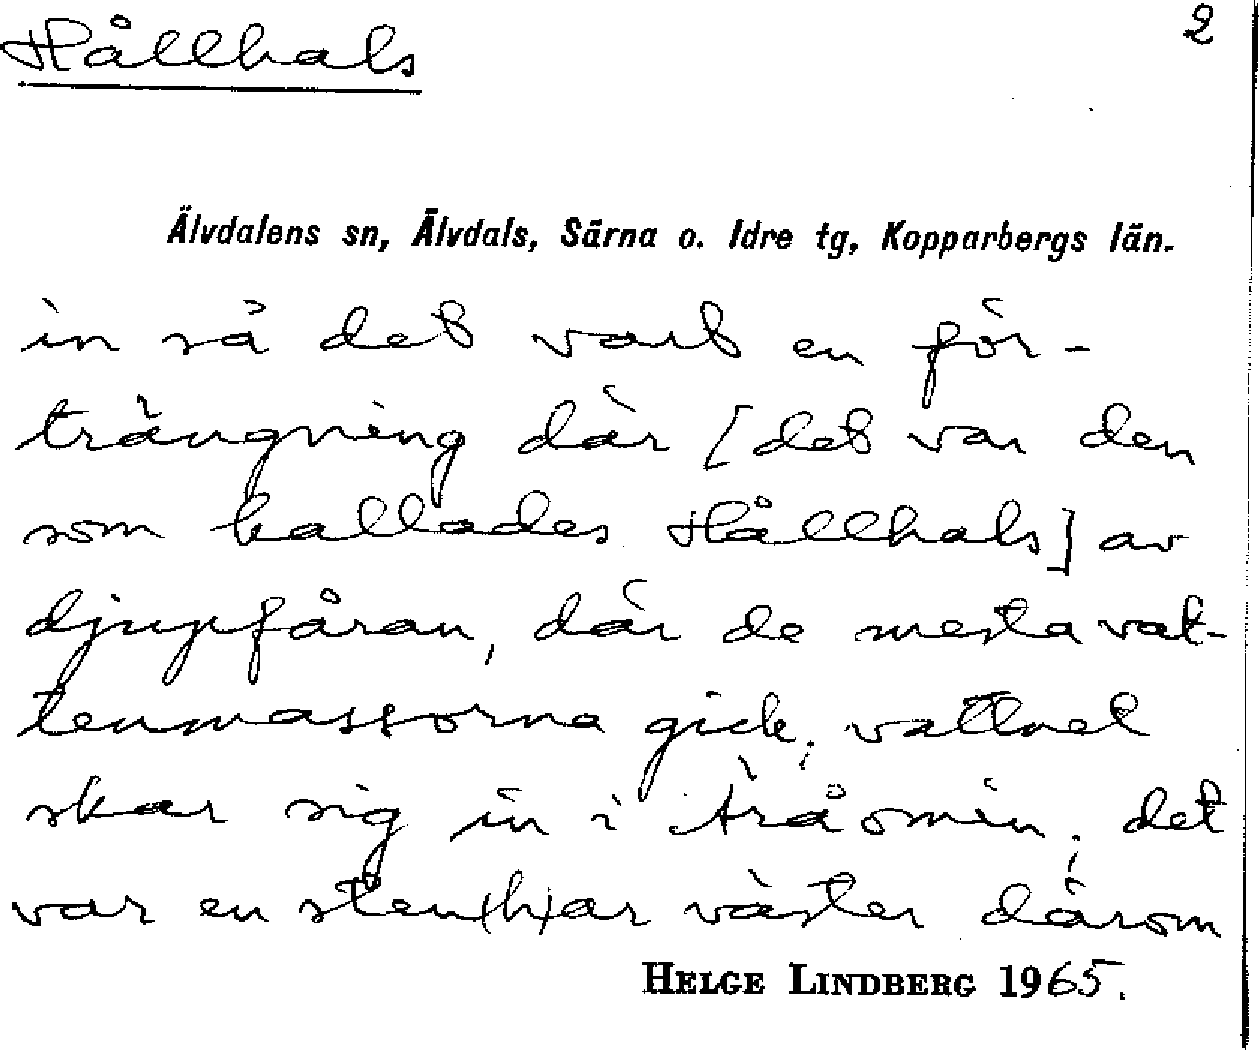 Hållhals
2
Älvdalens sn, Älvdals, Särna o. Idre tg, Kopparbergs län.
in så det vart en för-
trängning där [det var den
som kallades Hållhals] av
djupfåran, där de mesta vat-
tenmassorna gick; vattnet
skar sig in i Åråomin; det
var en sten(h)ar väster därom
HELGE LINDBERG 1965.